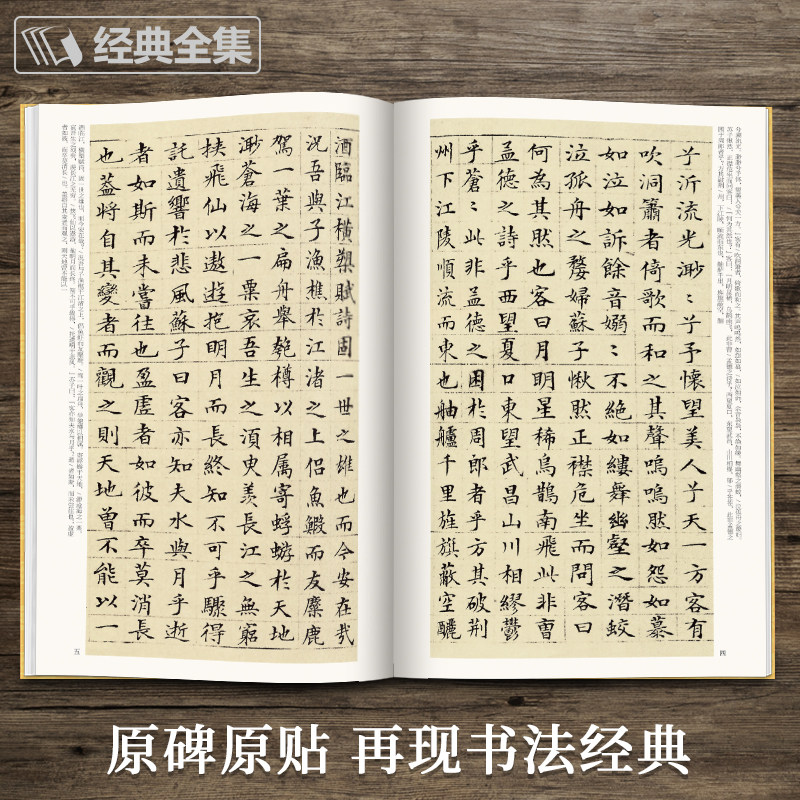 经典全集
兮泝流光渺〻兮予懷望美人兮天一方客有
吹洞簫者倚歌而和之其聲嗚嗚然如怨如慕
如泣如訴餘音嫋〻不絕如縷舞幽壑之潛蛟
泣孤舟之嫠婦蘇子愀然正襟危坐而問客曰
何為其然也客曰月明星稀烏鵲南飛此非曹
孟德之詩乎西望夏口東望武昌山川相繆鬱
乎蒼〻此非孟德之困於周郎者乎方其破荊
州下江陵順流而東也舳艫千里旌旗蔽空釃
四
酒臨江橫槊賦詩固一世之雄也而今安在哉
況吾與子漁樵於江渚之上侶魚鰕而友麋鹿
駕一葉之扁舟舉匏樽以相属寄蜉蝣於天地
渺蒼海之一粟哀吾生之須臾羨長江之無窮
挟飛仙以遨遊抱明月而長終知不可乎驟得
託遺響於悲風蘇子曰客亦知夫水與月乎逝
者如斯而未嘗往也盈虛者如彼而卒莫消長
也葢將自其變者而觀之則天地曾不能以一
五
原碑原贴 再现书法经典